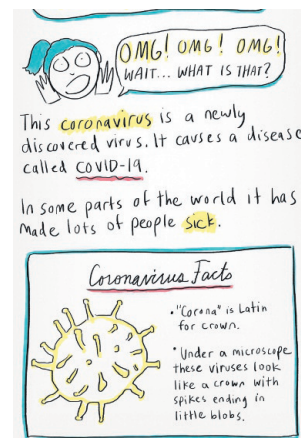 OMG! OMG! OMG!
WAIT... WHAT IS THAT?
This coronavirus is a newly
discovered virus. It causes a disease
called COVID-19.
In some parts of the world it has
made lots of people sick.
Coronavirus Facts
• "Corona" is Latin
for crown.
• Under a microscope
these viruses look
like a crown with
spikes ending in
little blobs.